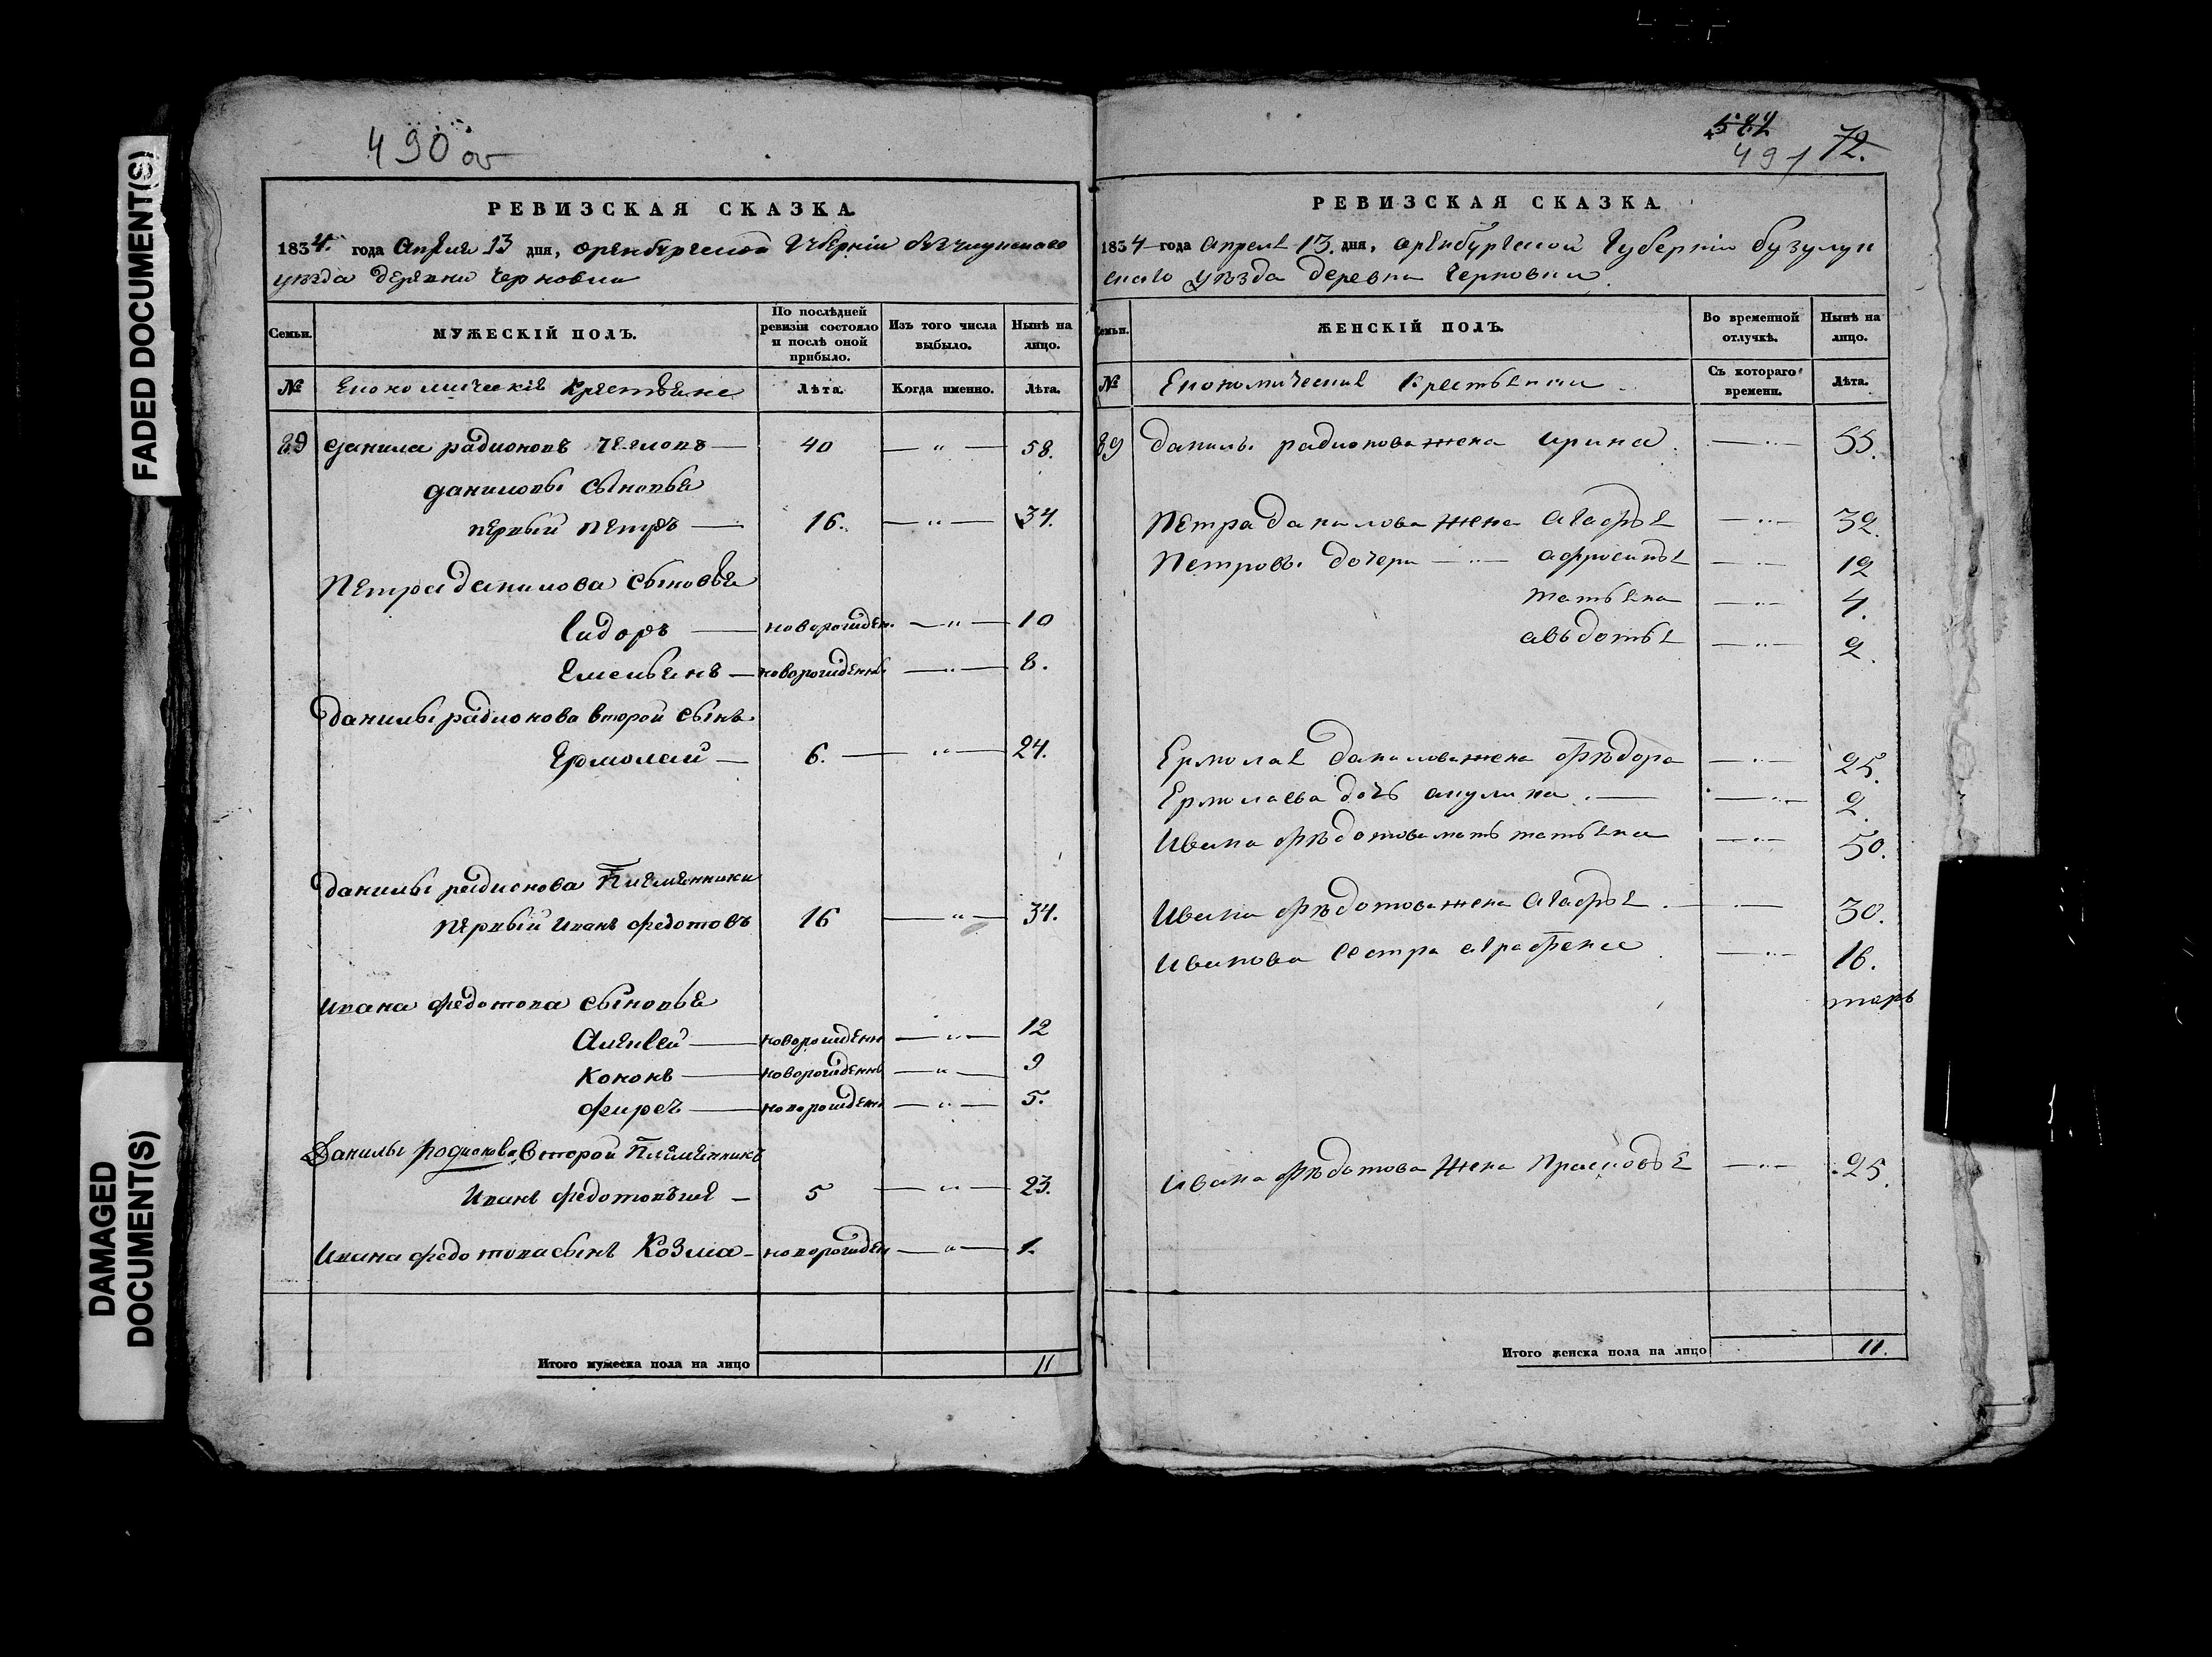 FADED DOCUMENT(S)
DAMAGED
DOCUMENT(S)
490 об
РЕВИЗСКАЯ СКАЗКА.
1834. года Апреля 13 дня, Оренбургской Губерніи Бузулукскаго
уезда деревни Черновки
Семьи.
МУЖЕСКІЙ ПОЛЪ.
По послѣдней
ревизіи состояло
и послѣ оной
прибыло.
Изъ того числа
выбыло.
Нынѣ на
лицо.
№
Економическіе Крестьяне
Лѣта.
Когда именно.
Лѣта.
89 Данила радионовъ — 40 — " — 58.
даниловы сыновья
первый петръ — 16. — " — 34.
Петра данилова сыновья
Сидоръ — новорожден. — " — 10
Емельянъ — новорожденны — " — 8.
Данилы радионова второй сынъ
Ермолай — 6. — " — 24.
Данилы радионова племянники
первый иванъ федотовъ 16 — " — 34.
ивана федотова сыновья
Алексей — новорожденн — " — 12
Кононъ — новорожденны — " — 9
фирсъ — новорожденн — " — 5.
Данилы Родионова второй племянникъ
Иванъ федотовъ же — 5 — " — 23.
Ивана федотова сынъ Козма — новорожден — " — 1.
Итого мужеска пола на лицо 11
491 72.
РЕВИЗСКАЯ СКАЗКА.
1834 года апреля 13. дня, оренбургской Губерніи бузулук
скаго уѣзда деревни Черновки.
Семьи.
ЖЕНСКІЙ ПОЛЪ.
Во временной
отлучкѣ.
Нынѣ на
лицо.
№
Економические Крестьянки
Съ котораго
времени.
Лѣта.
89 данилы радионова жена ирина. — " — 55.
Петра данилова жена агафья — " — 32.
Петровы дочери — " — афросинья — " — 12
татьяна — " — 4.
авдотья — " — 2.
Ермолая данилова жена фѣдора — " — 25.
Ермолаева дочь акулина. — " — 2.
Ивана фѣдотова мать татьяна — " — 50.
Ивана фѣдотова жена агафья. — " — 30.
Иванова сестра аграфена — " — 16.
Ивана фѣдотова жена Прасковья — " — 25.
Итого женска пола на лицо 11.